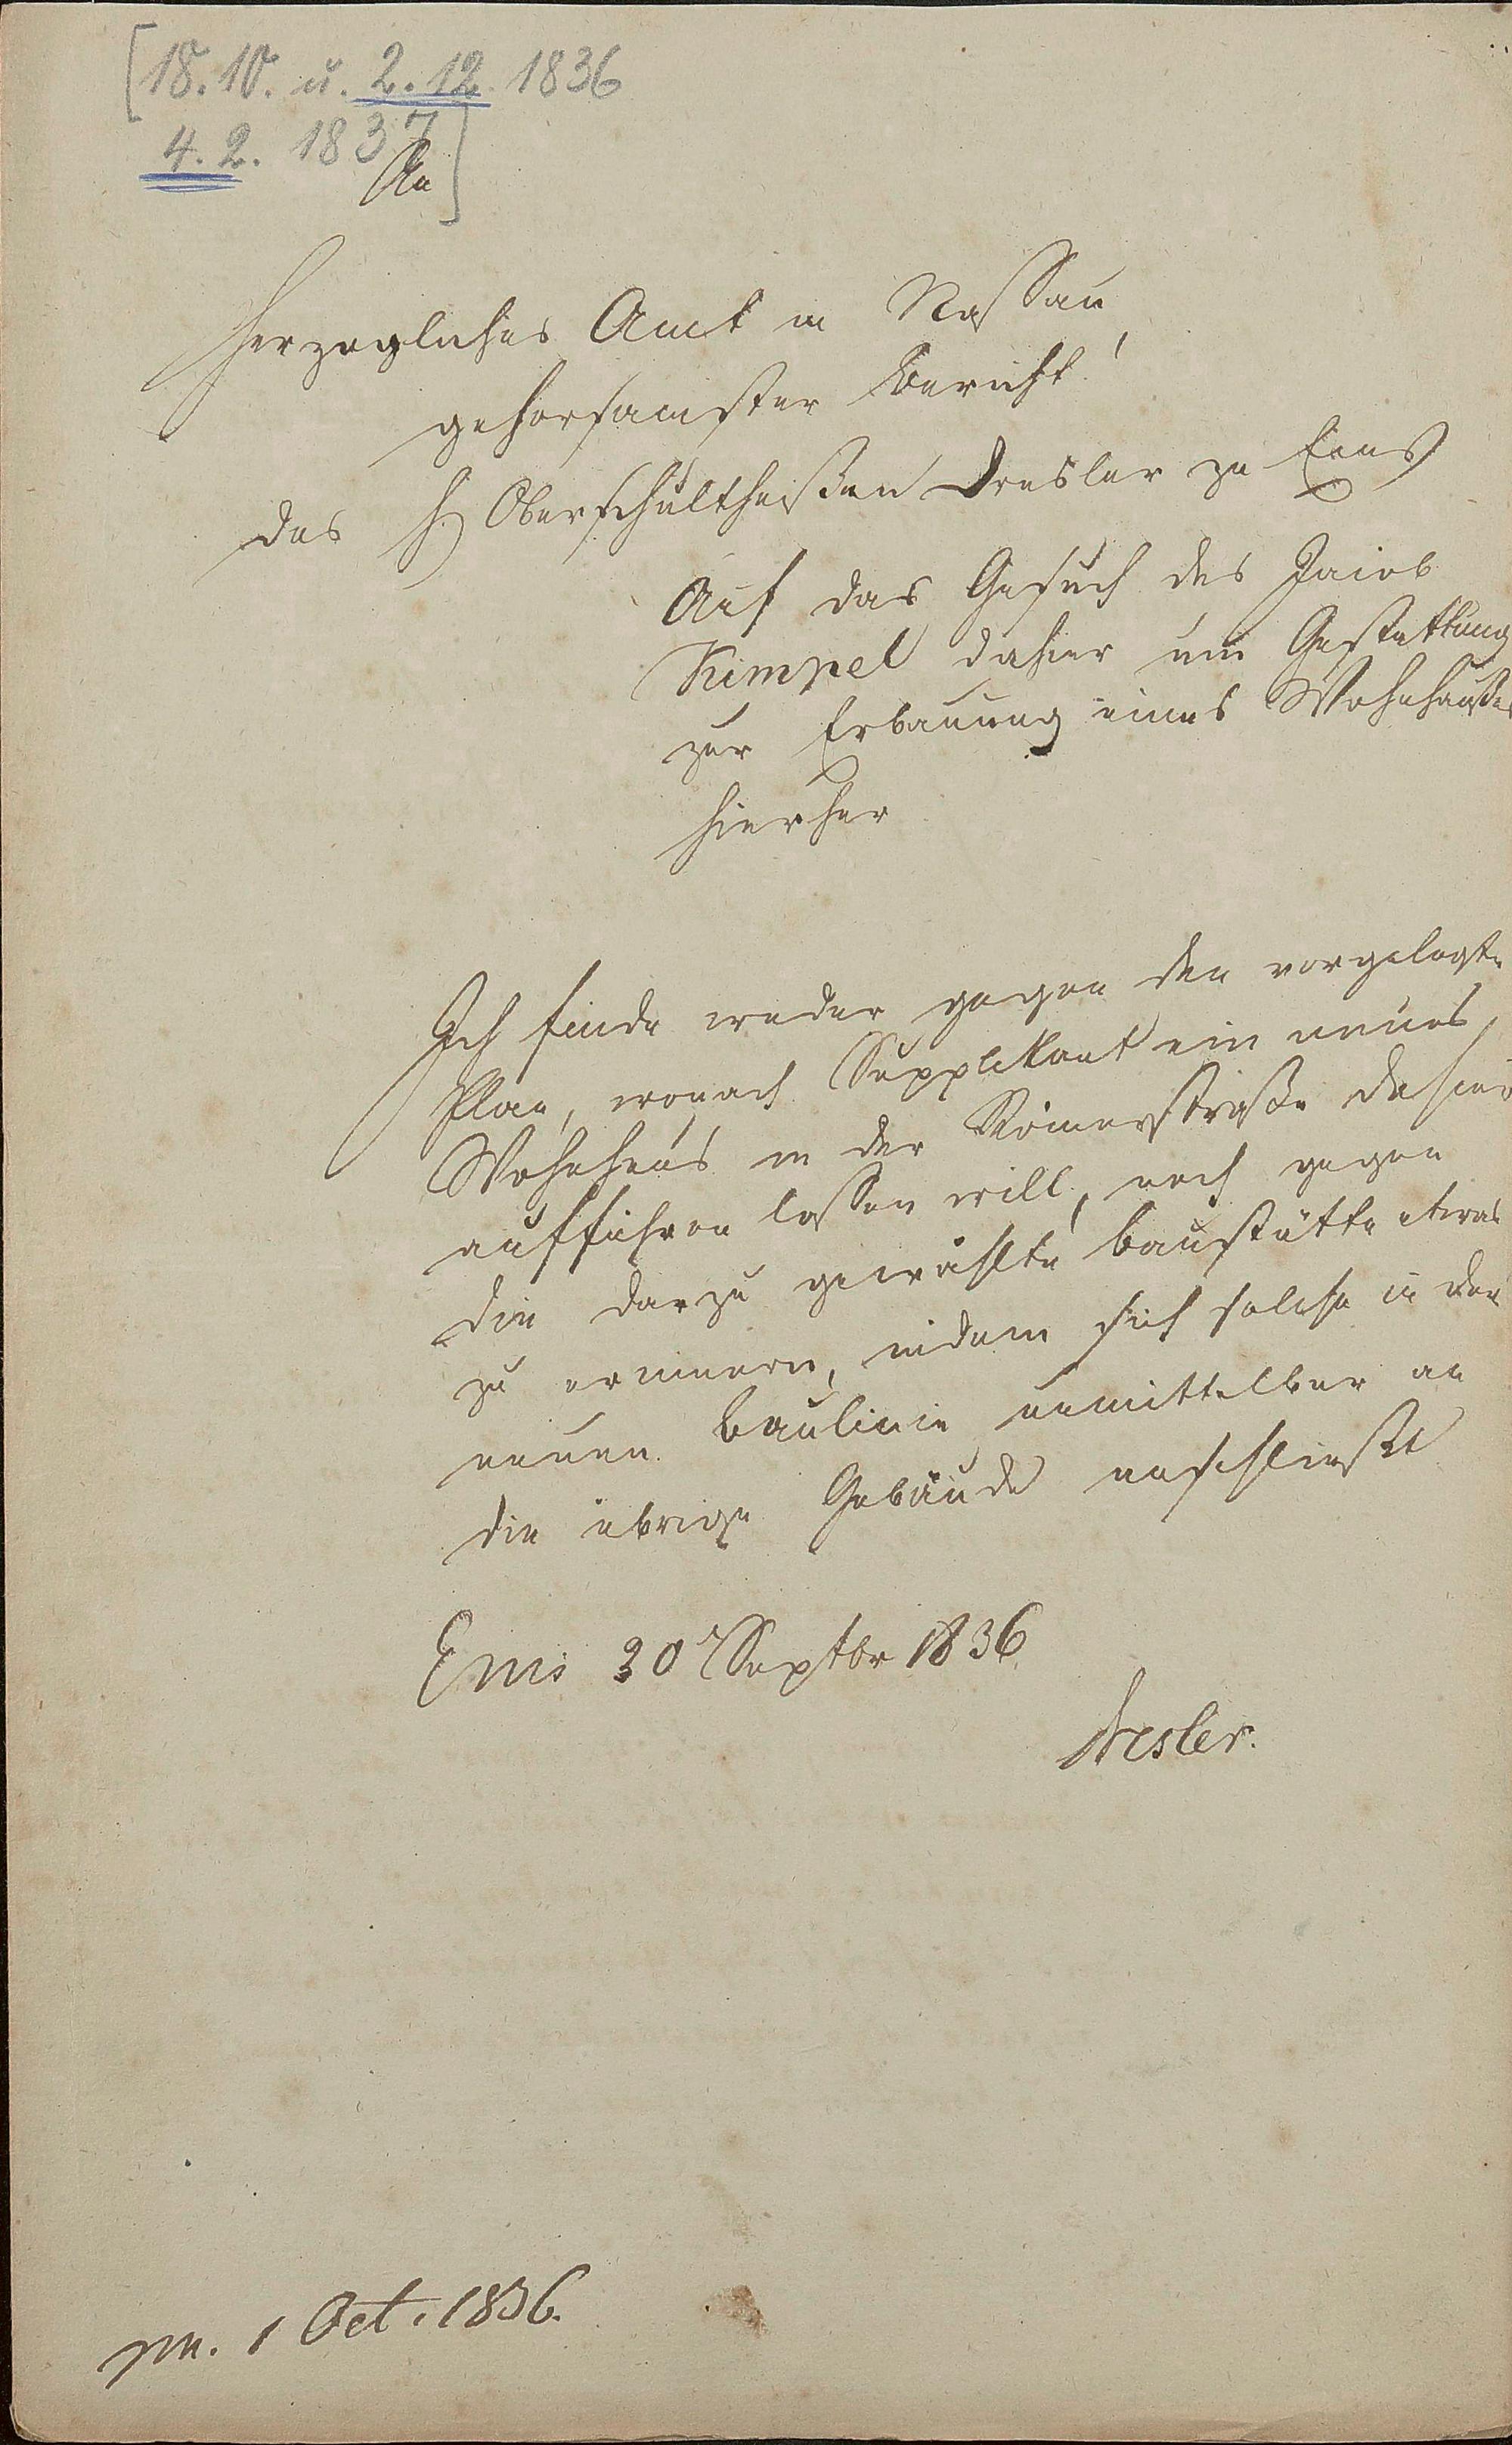 [18.10. u. 2.12. 1836
4.2. 1837]
An
Herzogliches Amt in Nassau
gehorsamster Bericht!
des H. Oberschultheißen Dresler zu Ems
Auf das Gesuch des Jacob
Kimpel dahier um Gestattung
zur Erbauung eines Wohnhauses
hierher
Ich finde weder gegen den vorgelegten
Plan, wonach Supplikant ein neues
Wohnhaus in der Römerstraße dahier
aufführen lassen will, noch gegen
die darzu gewählte Baustätte etwas
zu erinnern, indem sich solche in der
neuen Baulinie unmittelbar an
die übrige Gebäude anschließt
Ems 30r Septbr 1836.
Dresler.
pn. 1 Oct. 1836.